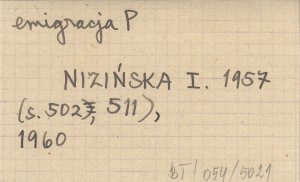 emigracja P
NIZIŃSKA I. 1957
(s. 502, 511),
1960
BT/054/5021